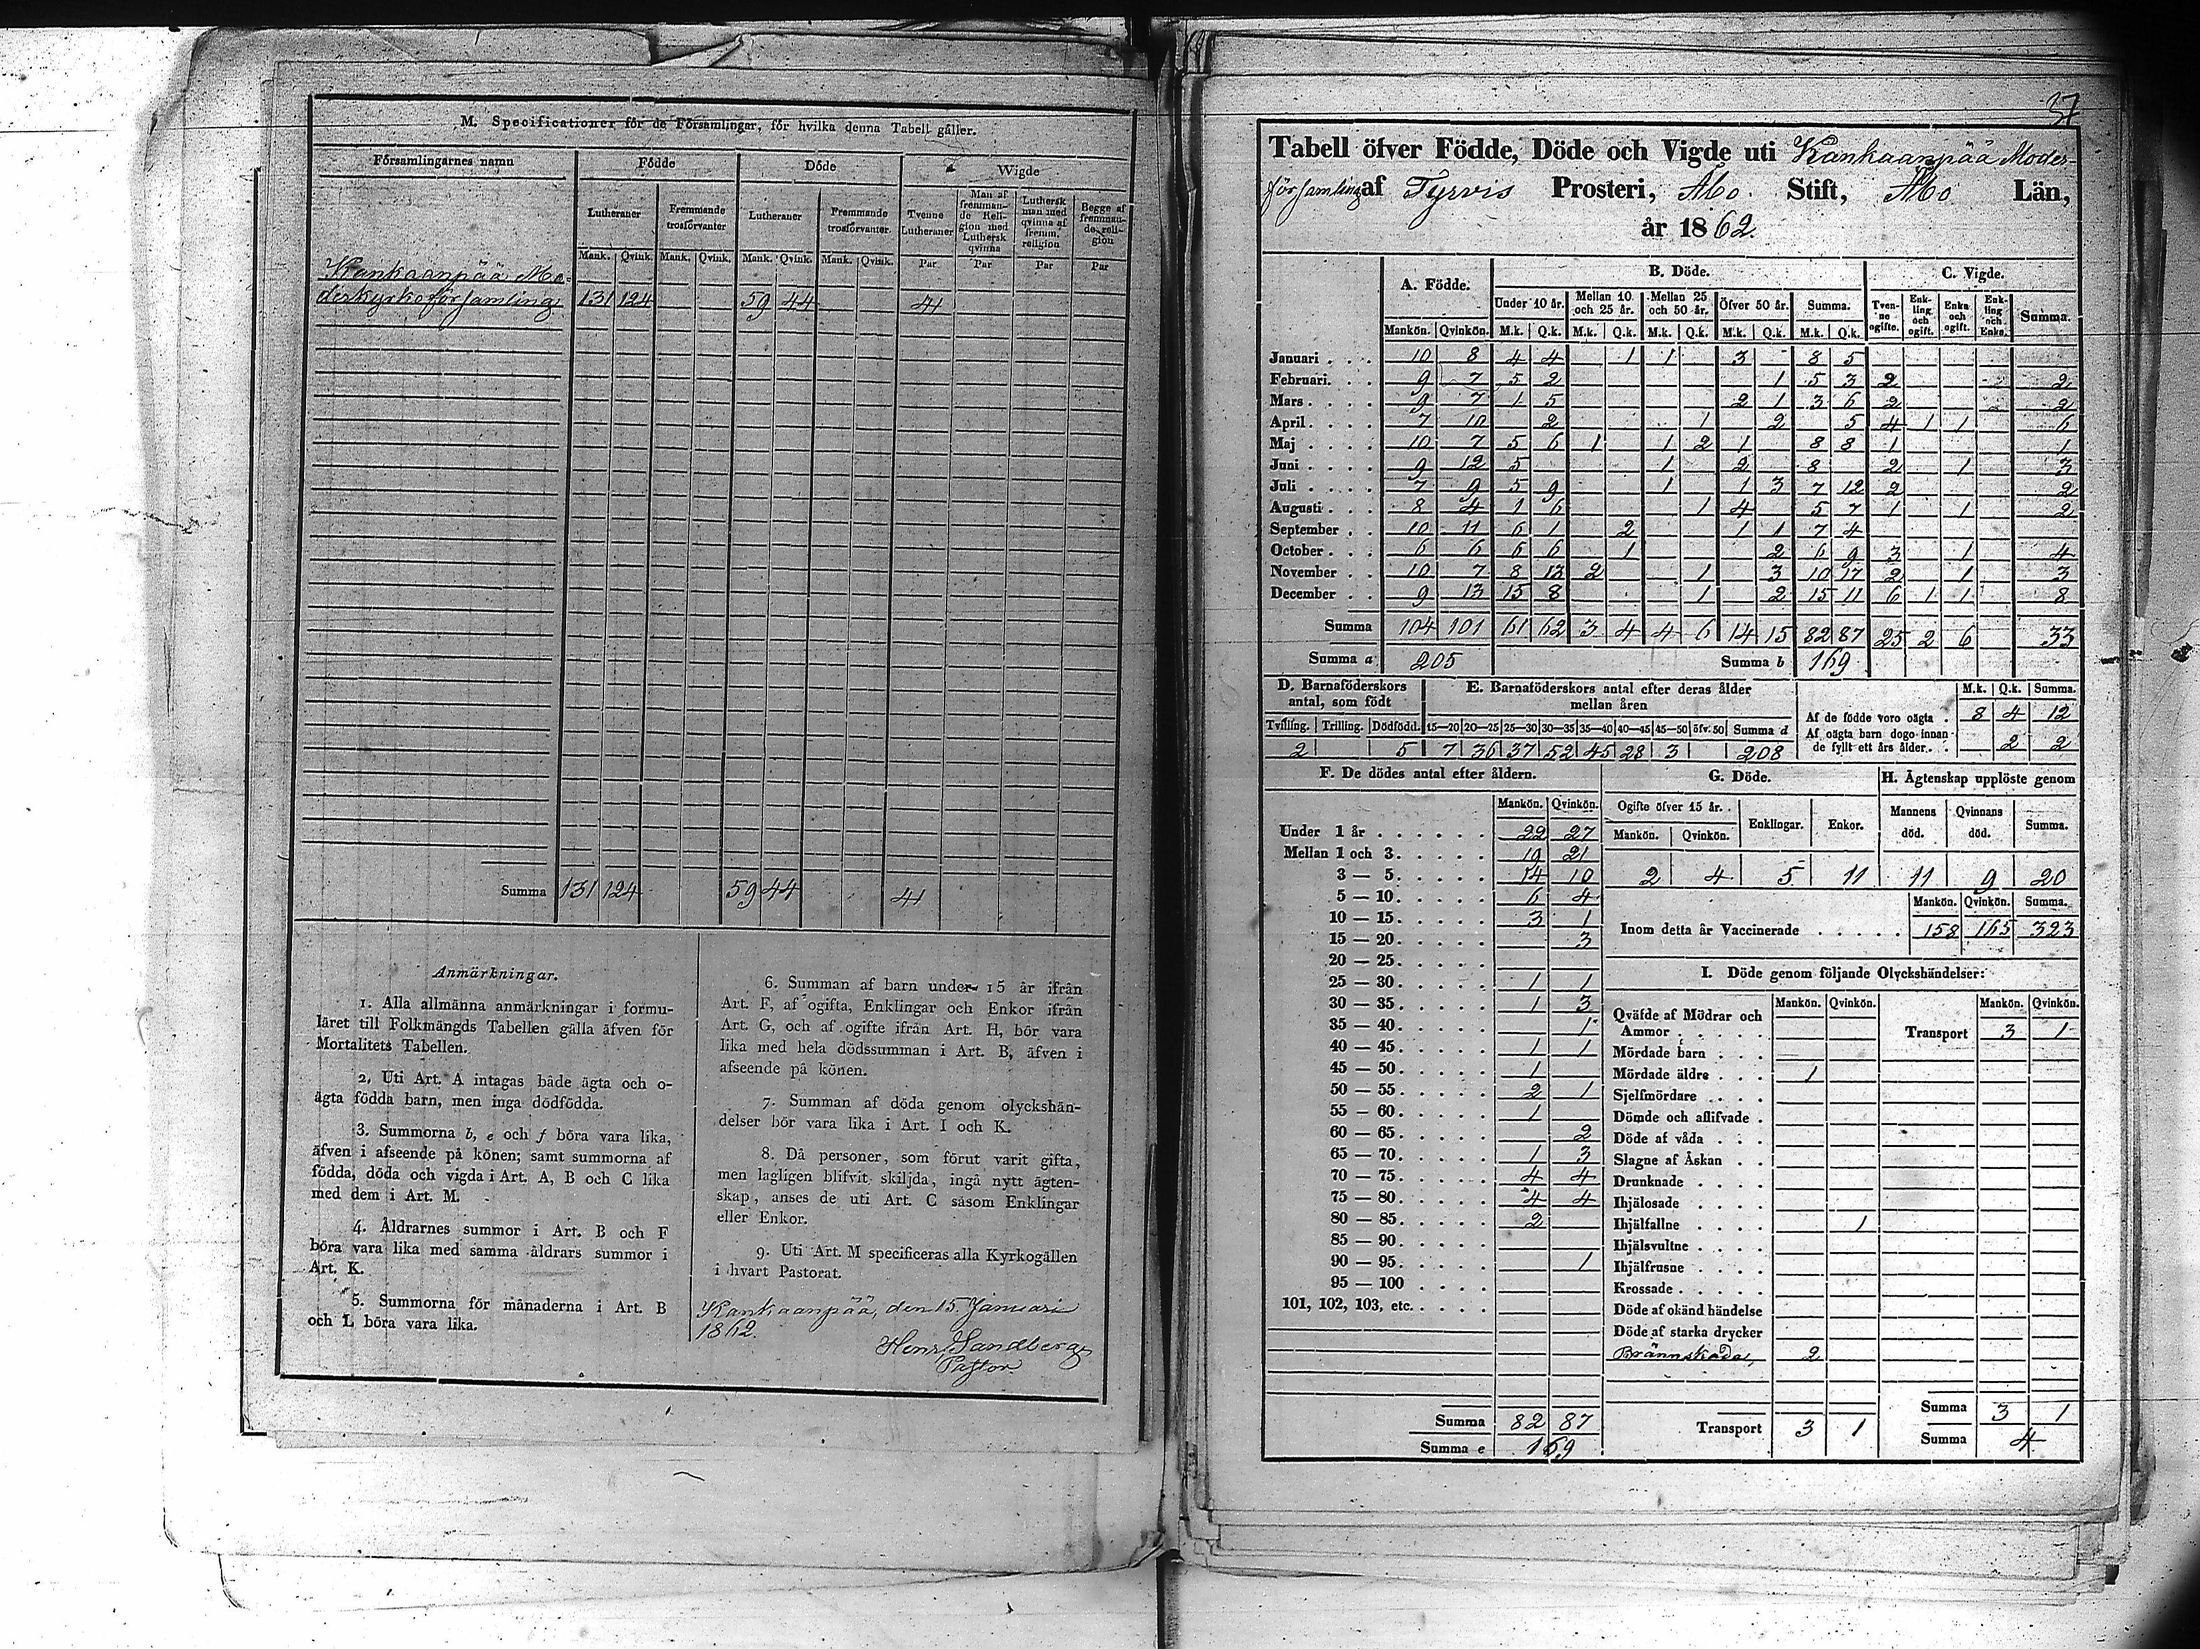 M. Specificationer för de Församlingar, för hvilka denna Tabell gäller.
Församlingarnes namn Födde Döde Wigde
Lutheraner Fremmande trosförvanter Lutheraner Fremmande trosförvanter Tvenne Lutheraner Man af fremmande Religion med Luthersk qvinna Luthersk man med qvinna af fremm. religion Begge af fremmande religion
Mank. Qvink. Mank. Qvink. Mank. Qvink. Mank. Qvink. Par Par Par Par
Kankaanpää Mo-
derkyrkoförsamling 131 124 59 44 41
Summa 131 124 59 44 41
Anmärkningar.
1. Alla allmänna anmärkningar i formu-
läret till Folkmängds Tabellen gälla äfven för
Mortalitets Tabellen.
2. Uti Art. A intagas både ägta och o-
ägta födda barn, men inga dödfödda.
3. Summorna b, e och f böra vara lika,
äfven i afseende på könen; samt summorna af
födda, döda och vigda i Art. A, B och C lika
med dem i Art. M.
4. Åldrarnes summor i Art. B och F
böra vara lika med samma åldrars summor i
Art. K.
5. Summorna för månaderna i Art. B
och L böra vara lika.
6. Summan af barn under 15 år ifrån
Art. F, af ogifta, Enklingar och Enkor ifrån
Art. G, och af ogifte ifrån Art. H, bör vara
lika med hela dödssumman i Art. B, äfven i
afseende på könen.
7. Summan af döda genom olyckshän-
delser bör vara lika i Art. I och K.
8. Då personer, som förut varit gifta,
men lagligen blifvit skiljda, ingå nytt ägten-
skap, anses de uti Art. C såsom Enklingar
eller Enkor.
9. Uti Art. M specificeras alla Kyrkogällen
i hvart Pastorat.
Kankaanpää, den 15 Januari
1862.
Henr. Sandberg
Pastor
37
Tabell öfver Födde, Döde och Vigde uti Kankaanpää Moder-
församling af Tyrvis Prosteri, Åbo Stift, Åbo Län,
år 1862.
A. Födde. B. Döde. C. Vigde.
Under 10 år. Mellan 10 och 25 år. Mellan 25 och 50 år. Öfver 50 år. Summa. Tvenne ogifte. Enkling och ogift. Enka och ogift. Enkling och Enka. Summa.
Mankön. Qvinkön. M.k. Q.k. M.k. Q.k. M.k. Q.k. M.k. Q.k. M.k. Q.k.
Januari . . . 10 8 4 4 1 1 3 8 5
Februari. . . 9 7 5 2 1 5 3 2 2
Mars . . . . 9 7 1 5 2 1 3 6 2 2
April . . . . 7 10 2 1 2 5 4 1 1 6
Maj . . . . 10 7 5 6 1 1 2 1 8 8 1 1
Juni . . . . 9 12 5 1 2 8 2 1 3
Juli . . . . 7 9 5 9 1 1 3 7 12 2 2
Augusti . . . 8 4 1 6 1 4 5 7 1 1 2
September . . 10 11 6 1 2 1 1 7 4
October . . . 6 6 6 6 1 2 6 9 3 1 4
November . . 10 7 8 13 2 1 3 10 17 2 1 3
December . . 9 13 15 8 1 2 15 11 6 1 1 8
Summa 104 101 61 62 3 4 4 6 14 15 82 87 25 2 6 33
Summa a 205 Summa b 169
D. Barnaföderskors antal, som födt
Tvilling. Trilling. Dödfödd.
2 5
E. Barnaföderskors antal efter deras ålder mellan åren
15—20 20—25 25—30 30—35 35—40 40—45 45—50 öfv. 50 Summa d
7 36 37 52 45 28 3 208
M.k. Q.k. Summa.
Af de födde voro oägta . 8 4 12
Af oägta barn dogo innan
de fyllt ett års ålder. . 2 2
F. De dödes antal efter åldern.
Mankön. Qvinkön.
Under 1 år . . . . . . 22 27
Mellan 1 och 3. . . . . 19 21
3 — 5. . . . . 14 10
5 — 10. . . . . 6 4
10 — 15. . . . . 3 1
15 — 20. . . . . 3
20 — 25. . . . .
25 — 30. . . . . 1 1
30 — 35. . . . . 1 3
35 — 40. . . . . 1
40 — 45. . . . . 1 1
45 — 50. . . . . 1
50 — 55. . . . . 2 1
55 — 60. . . . . 1
60 — 65. . . . . 2
65 — 70. . . . . 1 3
70 — 75. . . . . 4 4
75 — 80. . . . . 4 4
80 — 85. . . . . 2
85 — 90. . . . .
90 — 95. . . . . 1
95 — 100 . . . .
101, 102, 103, etc. . . . .
Summa 82 87
Summa e 169
G. Döde.
Ogifte öfver 15 år. Enklingar. Enkor.
Mankön. Qvinkön.
2 4 5 11
H. Ägtenskap upplöste genom
Mannens död. Qvinnans död. Summa.
11 9 20
Mankön. Qvinkön. Summa.
Inom detta år Vaccinerade . . . . . 158 165 323
I. Döde genom följande Olyckshändelser:
Mankön. Qvinkön. Mankön. Qvinkön.
Qväfde af Mödrar och
Ammor . . . . . Transport 3 1
Mördade barn . . .
Mördade äldre . . . 1
Sjelfmördare . . . .
Dömde och aflifvade .
Döde af våda . . .
Slagne af Åskan . .
Drunknade . . . .
Ihjälosade . . . .
Ihjälfallne . . . . 1
Ihjälsvultne . . . .
Ihjälfrusne . . . .
Krossade . . . . .
Döde af okänd händelse
Döde af starka drycker
Brännskada, 2
Transport 3 1
Summa 3 1
Summa 4